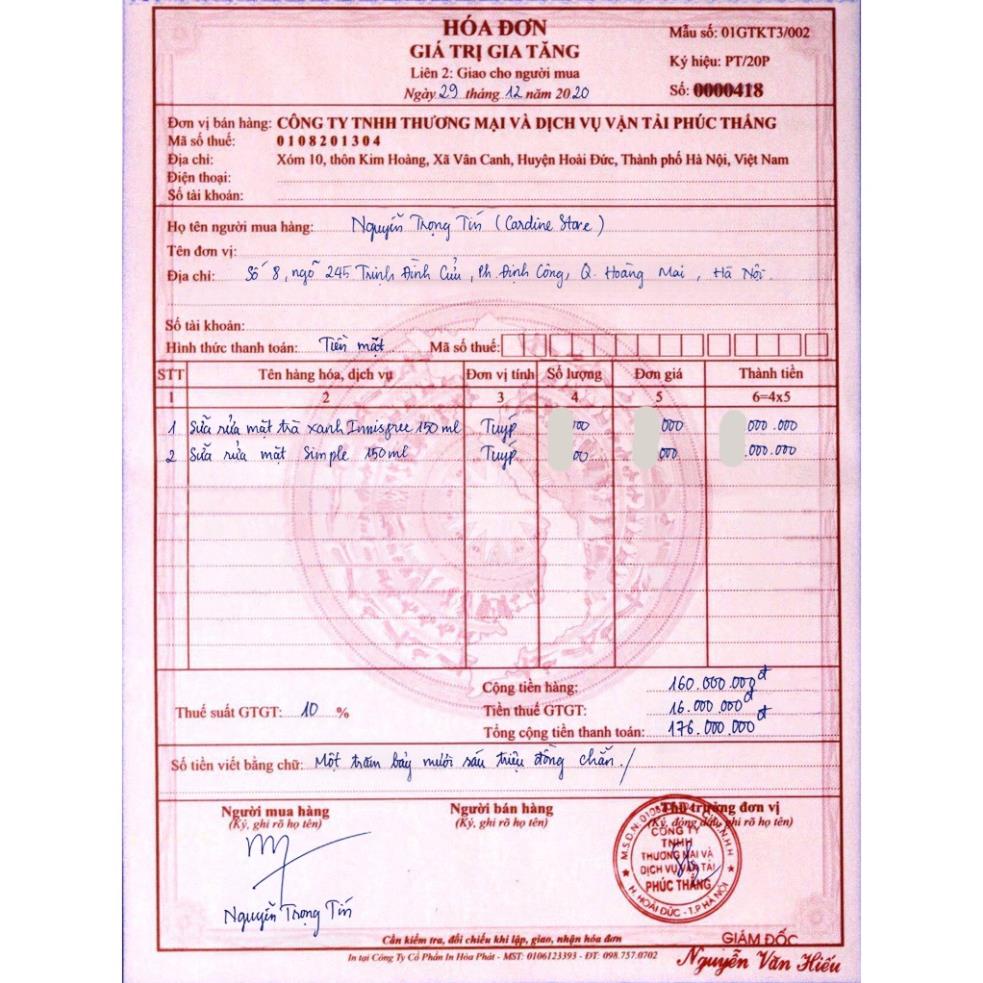 HÓA ĐƠN
GIÁ TRỊ GIA TĂNG
Liên 2: Giao cho người mua
Ngày 29 tháng 12 năm 2020
Mẫu số: 01GTKT3/002
Ký hiệu: PT/20P
Số: 0000418
Đơn vị bán hàng: CÔNG TY TNHH THƯƠNG MẠI VÀ DỊCH VỤ VẬN TẢI PHÚC THẮNG
Mã số thuế: 0108201304
Địa chỉ: Xóm 10, thôn Kim Hoàng, Xã Vân Canh, Huyện Hoài Đức, Thành phố Hà Nội, Việt Nam
Điện thoại:
Số tài khoản:
Họ tên người mua hàng: Nguyễn Trọng Tín (Cardine Store)
Tên đơn vị:
Địa chỉ: Số 8, ngõ 245 Trịnh Đình Cửu, Ph. Định Công, Q. Hoàng Mai, Hà Nội.
Số tài khoản:
Hình thức thanh toán: Tiền mặt Mã số thuế:
STT Tên hàng hóa, dịch vụ Đơn vị tính Số lượng Đơn giá Thành tiền
1 2 3 4 5 6=4x5
1 Sữa rửa mặt trà xanh Innisfree 150 ml Tuýp 00 000 .000.000
2 Sữa rửa mặt Simple 150 ml Tuýp 00 000 .000.000
Cộng tiền hàng: 160.000.000đ
Thuế suất GTGT: 10 % Tiền thuế GTGT: 16.000.000đ
Tổng cộng tiền thanh toán: 176.000.000đ
Số tiền viết bằng chữ: Một trăm bảy mươi sáu triệu đồng chẵn./
Người mua hàng Người bán hàng Thủ trưởng đơn vị
(Ký, ghi rõ họ tên) (Ký, ghi rõ họ tên) (Ký, đóng dấu, ghi rõ họ tên)
CÔNG TY
TNHH
THƯƠNG MẠI VÀ
DỊCH VỤ VẬN TẢI
PHÚC THẮNG
H. HOÀI ĐỨC - T.P HÀ NỘI
Nguyễn Trọng Tín
Cần kiểm tra, đối chiếu khi lập, giao, nhận hóa đơn
In tại Công Ty Cổ Phần In Hòa Phát - MST: 0106123393 - ĐT: 098.757.0702
GIÁM ĐỐC
Nguyễn Văn Hiếu